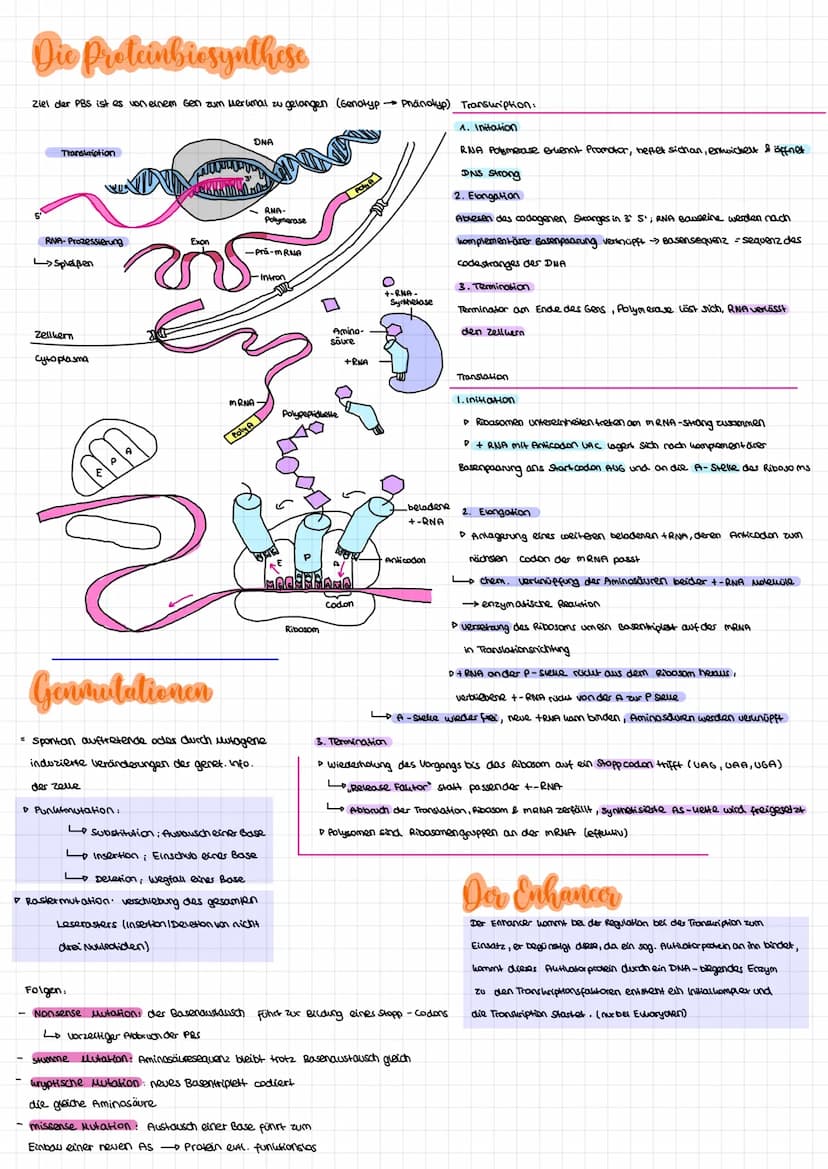 Die Proteinbiosynthese
Ziel der PBS ist es von einem Gen zum Merkmal zu gelangen (Genotyp → Phänotyp)
Transkription
DNA
3'
5'
RNA-
Polymerase
Poly A
RNA-Prozessierung
↳ Spleißen
Exon
Prä-mRNA
Intron
t-RNA-
Synthetase
Amino-
säure
tRNA
Zellkern
Cytoplasma
mRNA
Poly A
Polypeptidkette
E P A
beladene
t-RNA
E P A
Anticodon
Codon
Ribosom
Transkription:
1. Initation
RNA Polymerase erkennt Promotor, heftet sich an, entwickelt & öffnet
DNS Strang
2. Elongation
Ablesen das codogenen Stranges in 3' 5'; RNA Bausteine werden nach
komplementärer Basenpaarung verknüpft → Basensequenz = Sequenz des
Codestranges der DNA
3. Termination
Terminator am Ende des Gens, Polymerase löst sich, RNA verlässt
den Zellkern
Translation
1. Initiation
▹ Ribosomen untereinheiten treten am mRNA-Strang zusammen
▹ tRNA mit Anticodon UAC lagert sich nach komplementärer
Basenpaarung ans Startcodon AUG und an die A-Stelle des Ribosoms
2. Elongation
▹ Anlagerung eines weiteren beladenen tRNA, deren Anticodon zum
nächsten Codon der mRNA passt
↳ chem. Verknüpfung der Aminosäuren beider t-RNA Moleküle
→ enzymatische Reaktion
▹ Versetzung des Ribosoms um ein Basentriplett auf der mRNA
in Translationsrichtung
▹ tRNA an der P-Stelle rückt aus dem Ribosom heraus,
verbliebene t-RNA rückt von der A zur P Stelle
↳ A-Stelle wieder frei, neue tRNA kann binden, Aminosäuren werden verknüpft
3. Termination
▹ Wiederholung des Vorgangs bis das Ribosom auf ein Stoppcodon trifft (UAG, UAA, UGA)
↳ "Release Faktor" statt passender t-RNA
↳ Abbruch der Translation, Ribosom & mRNA zerfällt, synthetisierte AS-Kette wird freigesetzt
▹ Polysomen sind Ribosomengruppen an der mRNA (effektiv)
Genmutationen
= spontan auftretende oder durch Mutagene
induzierte Veränderungen der genet. Info.
der Zelle
▹ Punktmutation:
↳ Substitution; Austausch einer Base
↳ Insertion; Einschub einer Base
↳ Deletion; Wegfall einer Base
▹ Rastermutation: Verschiebung des gesamten
Leserasters (Insertion/Deletion von nicht
drei Nukleotiden)
Folgen:
- Nonsense Mutation: der Basenaustausch führt zur Bildung eines Stopp-Codons
↳ vorzeitiger Abbruch der PBS
- stumme Mutation: Aminosäuresequenz bleibt trotz Basenaustausch gleich
- kryptische Mutation: neues Basentriplett codiert
die gleiche Aminosäure
- missense Mutation: Austausch einer Base führt zum
Einbau einer neuen As → Protein evtl. funktionslos
Der Enhancer
Der Enhancer kommt bei der Regulation bei der Transkription zum
Einsatz, er begünstigt diese, da ein sog. Aktivatorprotein an ihn bindet,
kommt dieses Aktivatorprotein durch ein DNA-biegendes Enzym
zu den Transkriptionsfaktoren entsteht ein Initialkomplex und
die Transkription startet. (nur bei Eukaryoten)